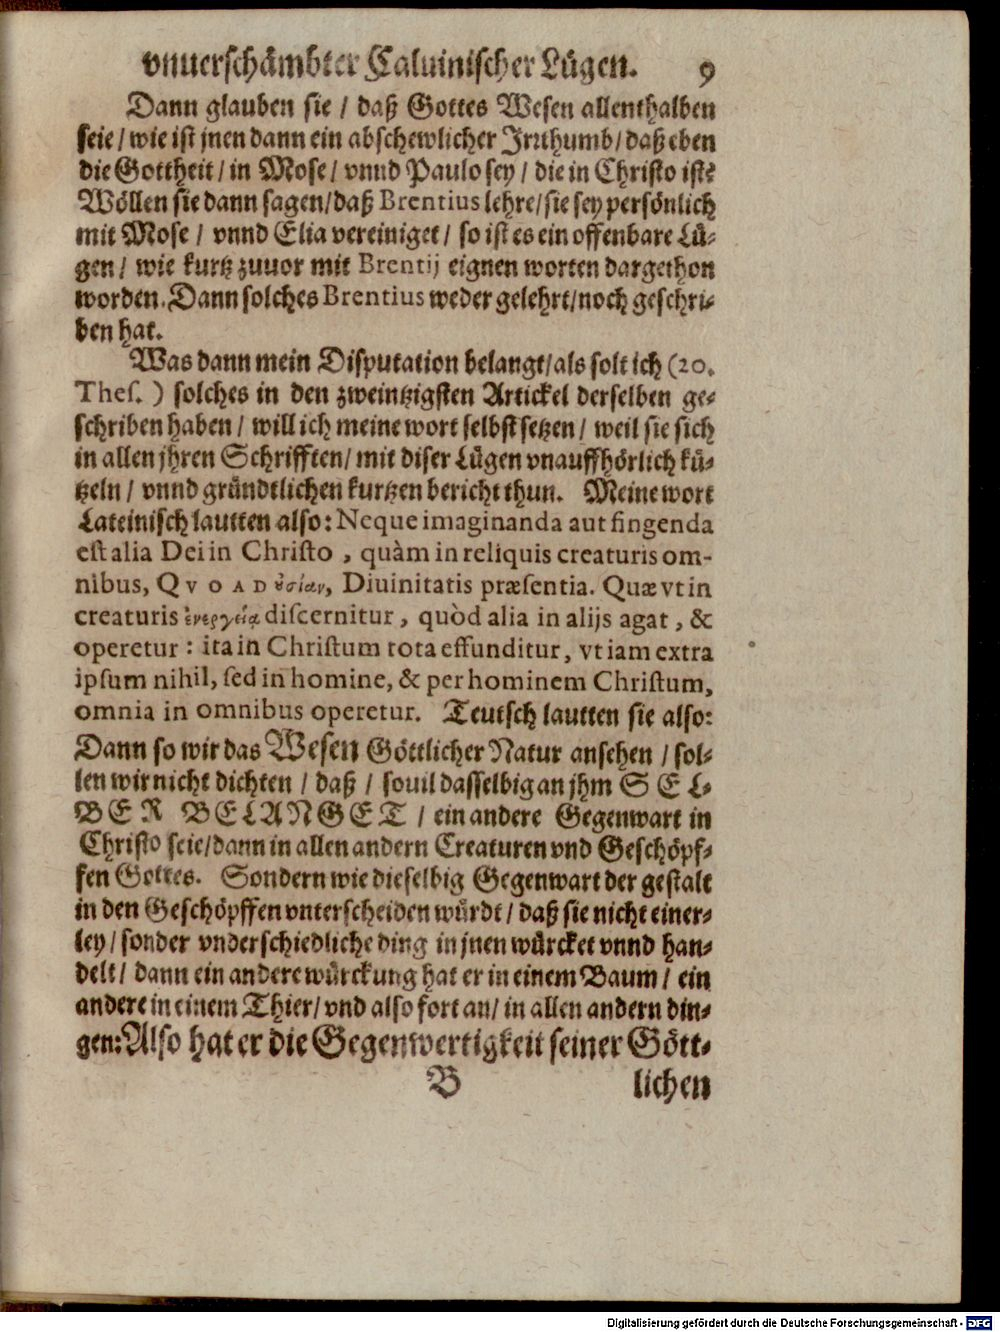 vnuerschämbter Caluinischer Lügen. 9
Dann glauben sie / daß Gottes Wesen allenthalben
seie / wie ist jnen dann ein abschewlicher Irrthumb / daß eben
die Gottheit / in Mose / vnnd Paulo sey / die in Christo ist?
Wöllen sie dann sagen / daß Brentius lehre / sie sey persönlich
mit Mose / vnnd Elia vereiniget / so ist es ein offenbare Lü-
gen / wie kurtz zuuor mit Brentij eignen worten dargethon
worden. Dann solches Brentius weder gelehrt / noch geschri-
ben hat.
Was dann mein Disputation belangt / als solt ich (20.
Thes. ) solches in den zweintzigsten Artickel derselben ge-
schriben haben / will ich meine wort selbst setzen / weil sie sich
in allen jhren Schrifften / mit diser Lügen vnauffhörlich kü-
tzeln / vnnd gründtlichen kurtzen bericht thun. Meine wort
Lateinisch lautten also: Neque imaginanda aut fingenda
est alia Dei in Christo , quàm in reliquis creaturis om-
nibus, QVOAD οὐσίαν, Diuinitatis præsentia. Quæ vt in
creaturis ἐνεργείᾳ discernitur , quòd alia in alijs agat , &
operetur : ita in Christum tota effunditur, vt iam extra
ipsum nihil, sed in homine, & per hominem Christum,
omnia in omnibus operetur. Teutsch lautten sie also:
Dann so wir das Wesen Göttlicher Natur ansehen / sol-
len wir nicht dichten / daß / souil dasselbig an jhm SEL-
BER BELANGET / ein andere Gegenwart in
Christo seie / dann in allen andern Creaturen vnd Geschöpf-
fen Gottes. Sondern wie dieselbig Gegenwart der gestalt
in den Geschöpffen vnterscheiden würdt / daß sie nicht einer-
ley / sonder vnderschiedliche ding in jnen würcket vnnd han-
delt / dann ein andere würckung hat er in einem Baum / ein
andere in einem Thier / vnd also fort an / in allen andern din-
gen: Also hat er die Gegenwertigkeit seiner Gött-
B lichen
Digitalisierung gefördert durch die Deutsche Forschungsgemeinschaft - DFG